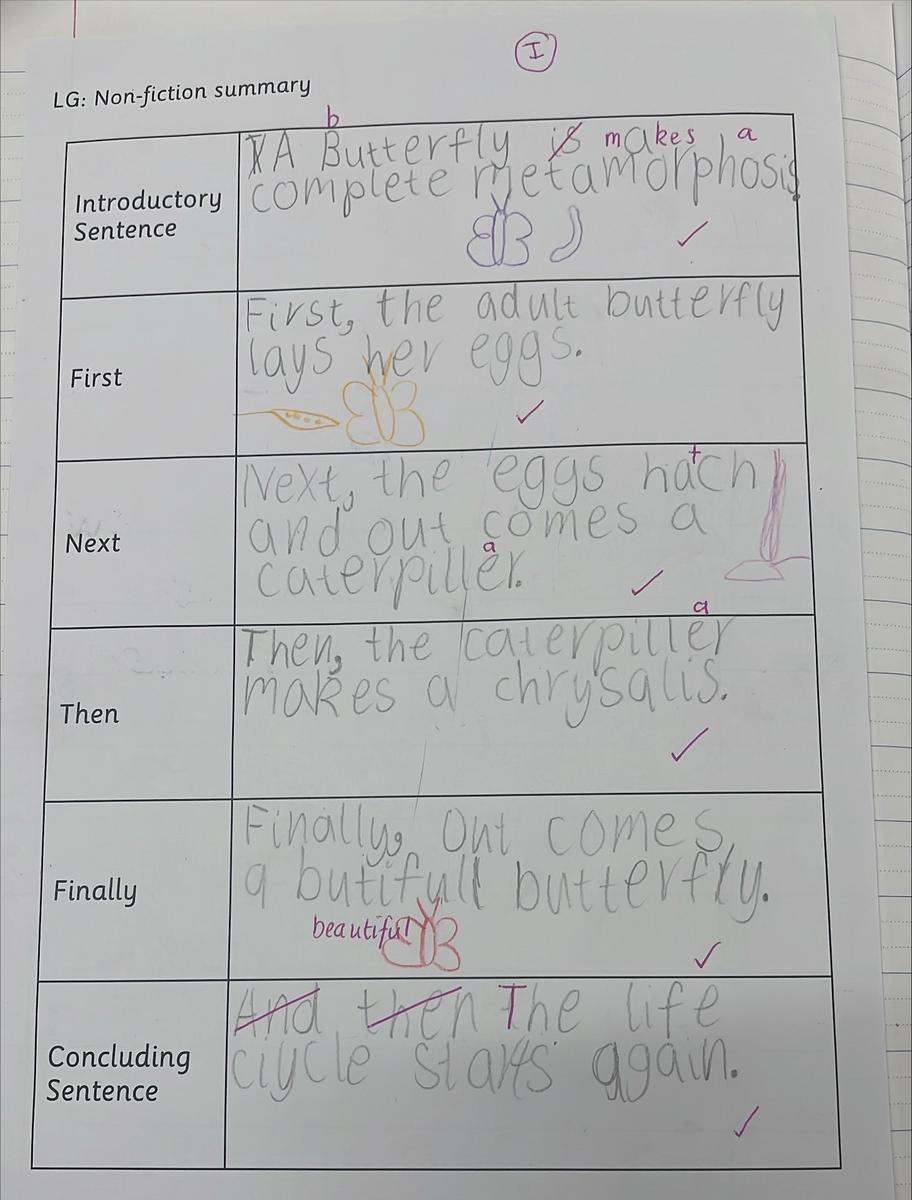 I
LG: Non-fiction summary
b
Introductory
Sentence
A Butterfly is makes a
complete metamorphosis
First
First, the adult butterfly
lays her eggs.
Next
t
Next, the eggs hach
and out comes a
a
caterpiller.
Then
a
Then, the caterpiller
makes a chrysalis.
Finally
Finally, Out comes
a butifull butterfly.
beautiful
Concluding
Sentence
And then The life
ciycle starts again.